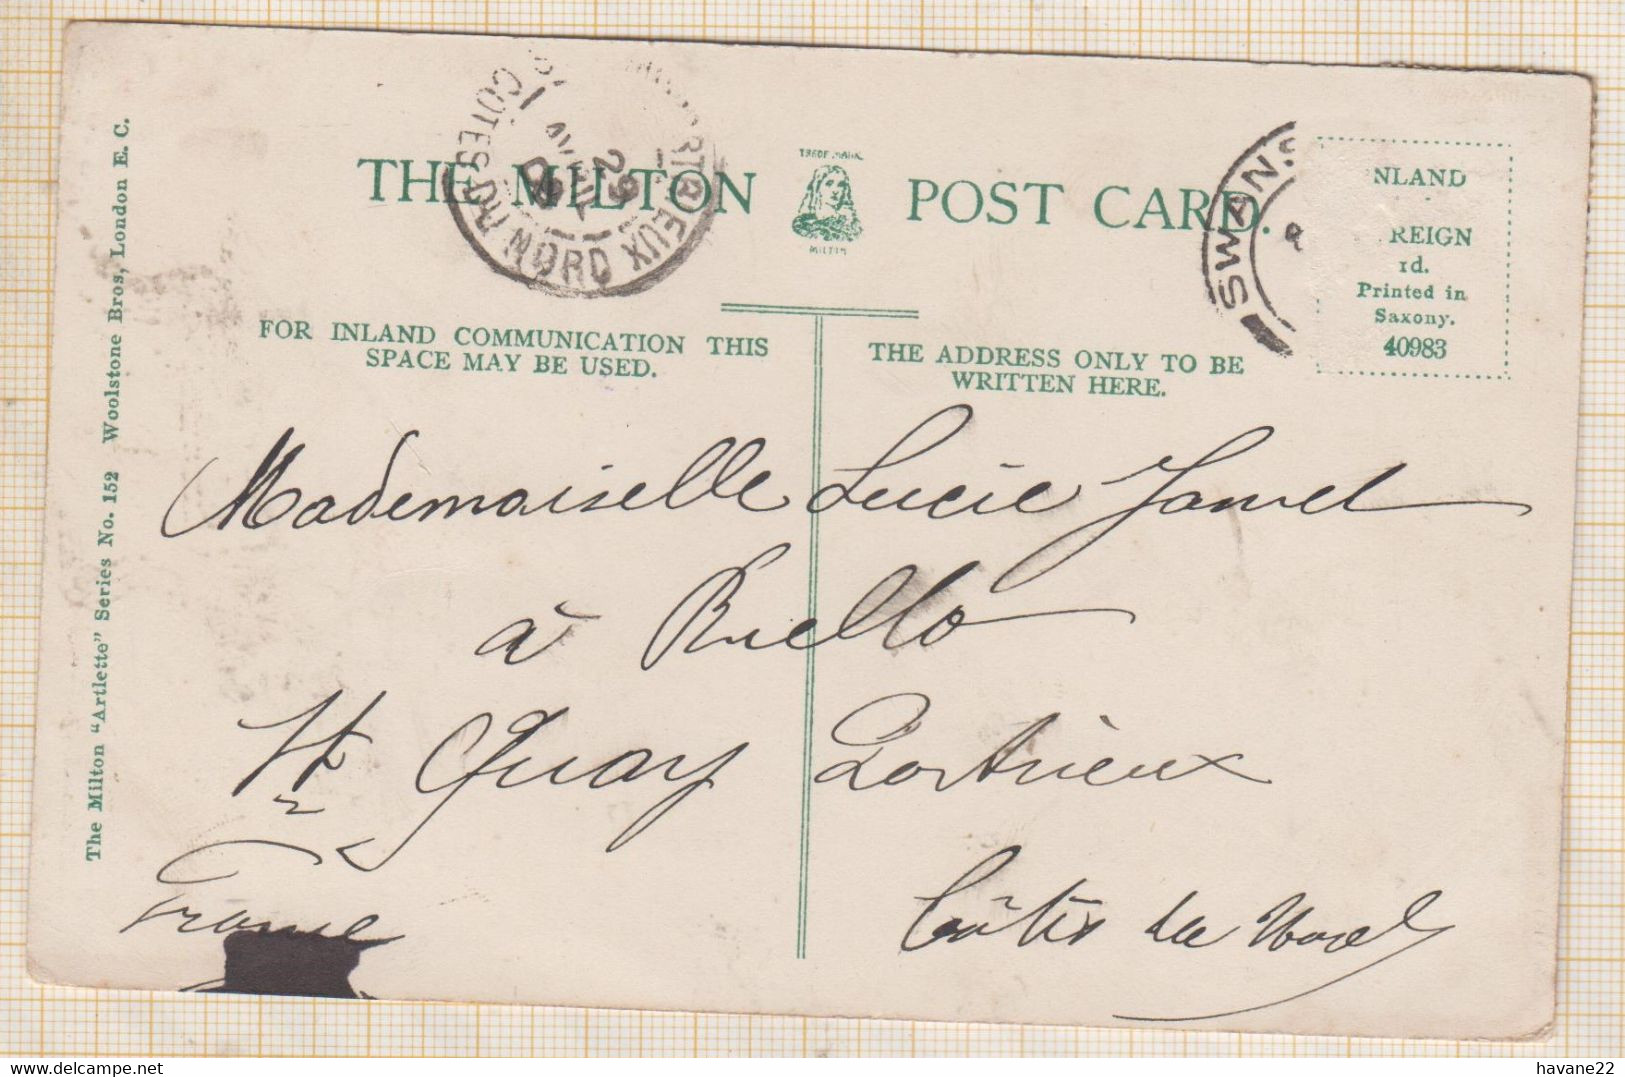 THE MILTON POST CARD.
TRADE MARK
MILTON
CÔTES-DU-NORD
29
SWANS
NLAND
REIGN
1d.
Printed in
Saxony.
40983
FOR INLAND COMMUNICATION THIS
SPACE MAY BE USED.
THE ADDRESS ONLY TO BE
WRITTEN HERE.
The Milton "Artlette" Series No. 152 Woolstone Bros, London E. C.
Mademoiselle Lucie Jamet
à Ruello
St Quay Portrieux
Côtes du Nord
France
havane22